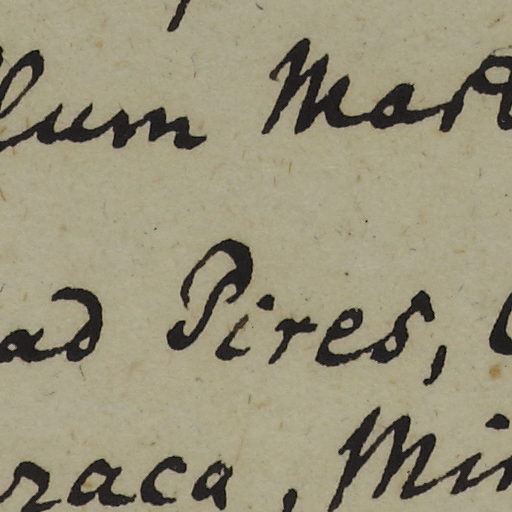 lum Mart
ad Pires,
raca, Min